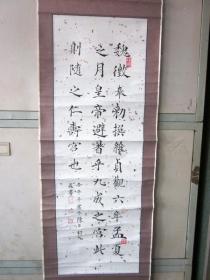 魏徵奉勑撰維貞觀六年孟夏
之月皇帝避暑乎九成之宮此
則隨之仁壽宮也